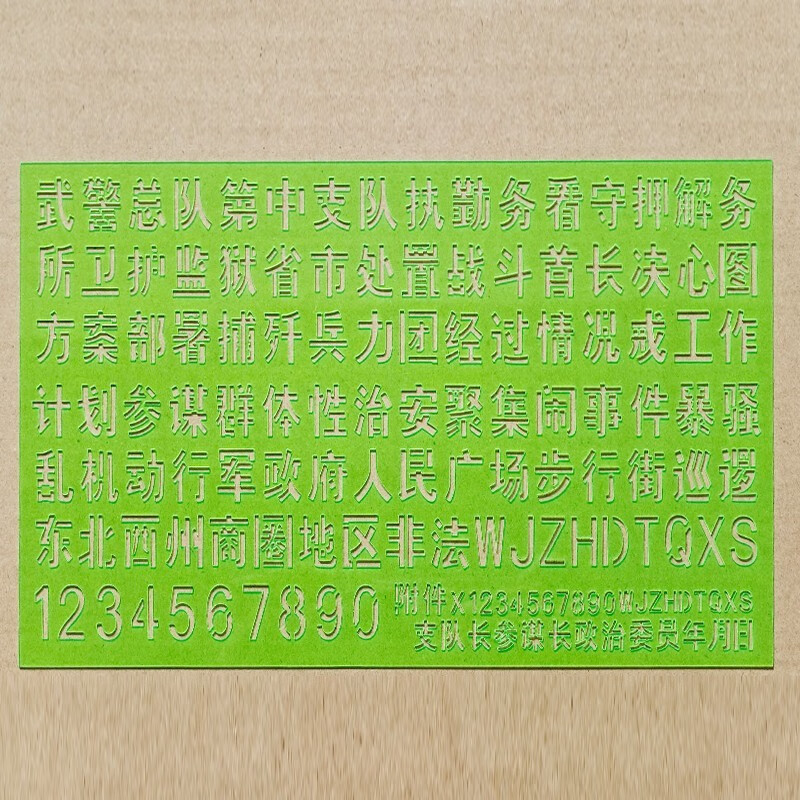 武警总队第中支队执勤务看守押解务
所卫护监狱省市处置战斗首长决心图
方案部署捕歼兵力团经过情况或工作
计划参谋群体性治安聚集闹事件暴骚
乱机动行军政府人民广场步行街巡逻
东北西州商圈地区非法WJZHDTQXS
1234567890
附件X1234567890WJZHDTQXS
支队长参谋长政治委员年月日